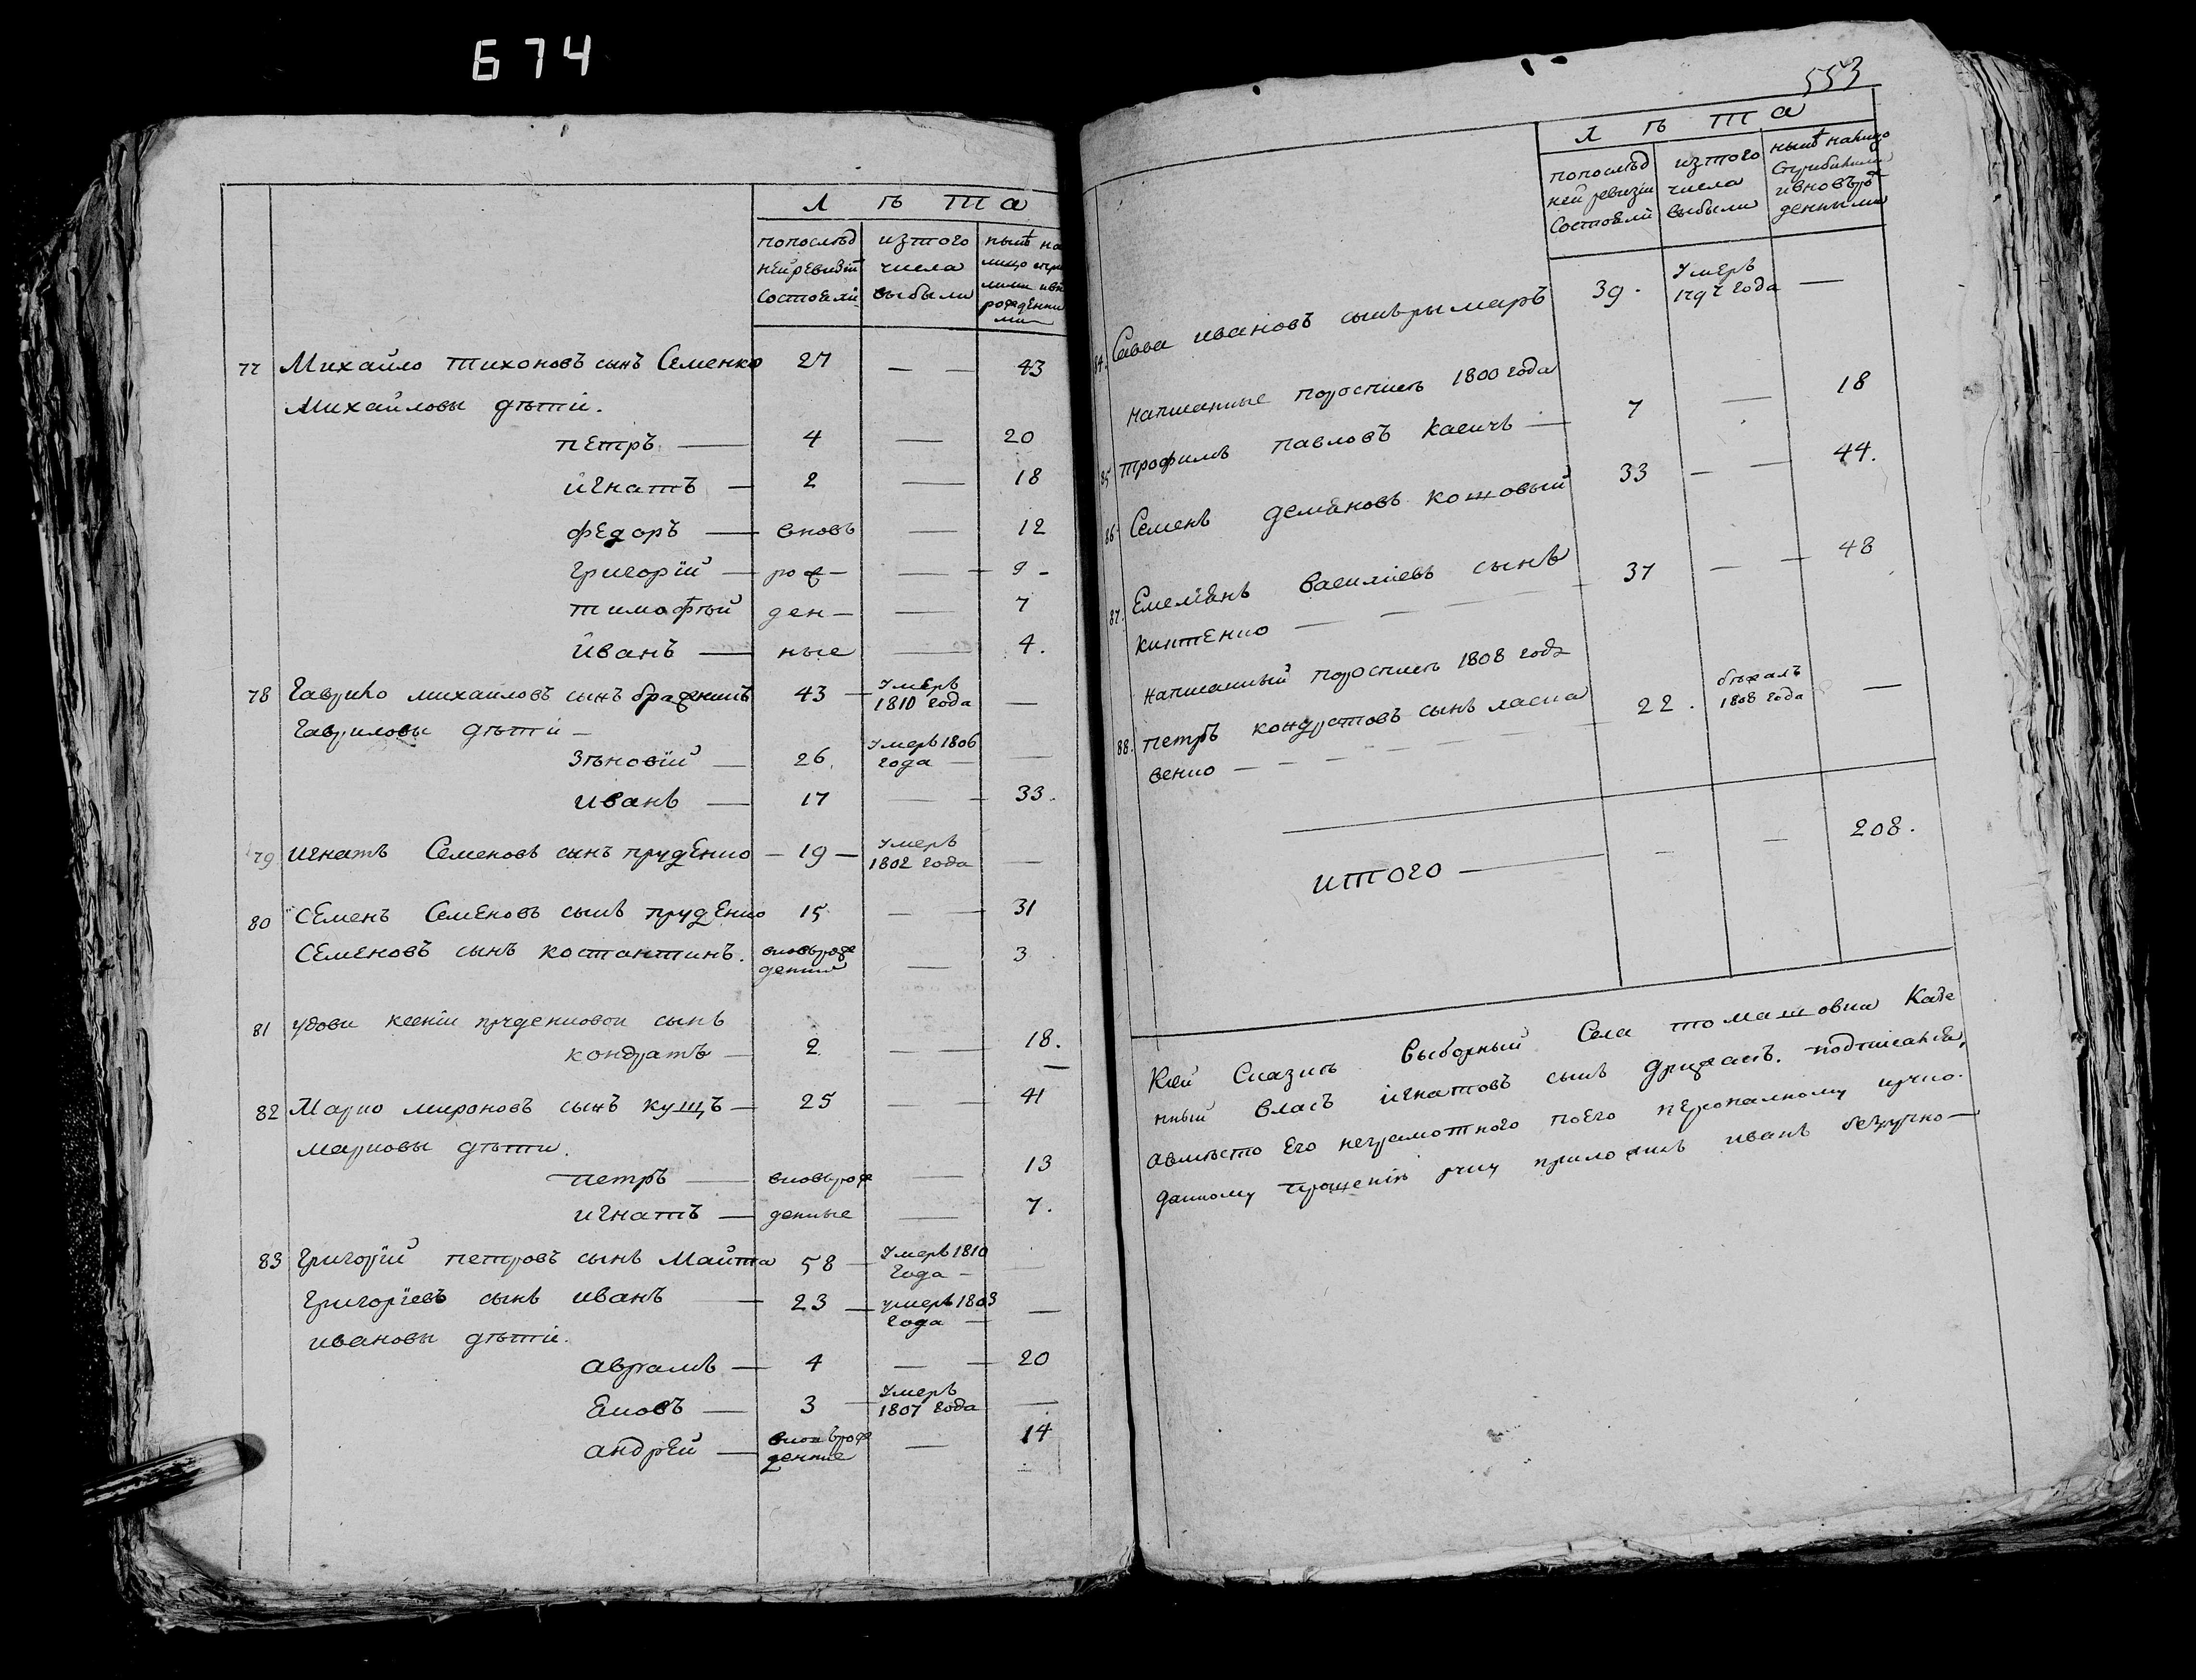 674
Л ѣ т а
попослѣд изтого нынѣ на
ней ревизіи числа лицо
Состояли выбыли
рожденны
ми
77 Михайло тихоновъ сынъ Семенко 27 — — 43
Михайловы дѣти.
петръ — 4 — 20
игнатъ — 2 — 18
федоръ — вновь — 12
григорій — рож — — 9 —
тимофѣй ден — — 7
йванъ — ные — 4.
78 Гаврило михайловъ сынъ 43 — умеръ 1810 года —
Гавриловы дѣти —
Зѣновій — 26. умеръ 1806 года — —
иванъ — 17 — — 33.
79 игнатъ Семеновъ сынъ пруденко — 19 — умеръ 1802 года —
80 Семенъ Семеновъ сынъ пруденко 15 — — 31
Семеновъ сынъ костантинъ. вновьрож — 3
81 удовы ксеніи пруденковой сынъ
кондратъ — 2 — — 18.
82 Марко мироновъ сынъ кущъ — 25 — — 41
марковы дѣти.
петръ — вновьрож — 13
игнатъ — денные — 7.
83 григорій петровъ сынъ Майта 58 — умеръ 1810 года — —
григоріевъ сынъ иванъ — 23 — умеръ 1803 года — —
ивановы дѣти.
аврамъ — 4 — — 20
Яковъ — 3 — умеръ 1807 года —
андрей — вновьрож — 14
553
Л ѣ т а
попослѣд изтого нынѣ налицо
ней ревизіи числа
Состояли выбыли ивновьро
денными
84. Савва ивановъ сынъ рымаръ 39. умеръ 179 года —
написанные поросписѣ 1800 года
85 трофимъ павловъ — 7 — 18
86. Семенъ демяновъ кошовый 33 — — 44.
87. Емеліянъ василіевъ сынъ
— — — — 37 — — 48
написанный поросписѣ 1808 года
88. петръ кондратовъ сынъ ласка
венко — — — — — 22. бѣжалъ 1808 года —
итого — — — 208.
Кзей Сказки выборный Села томашовки Казе
нный власъ игнатовъ сынъ подписался,
авмѣсто Его неграмотного поего
данному прошенію руку приложилъ иванъ —